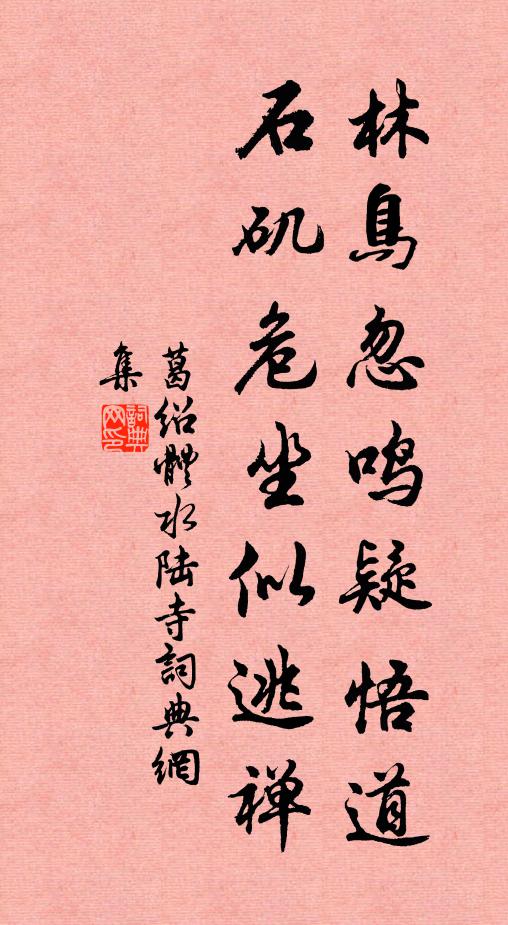 林鳥忽鸣疑悟道
石矶危坐似逃禅
葛绍體水陆寺詞典網
集
詞典
网印